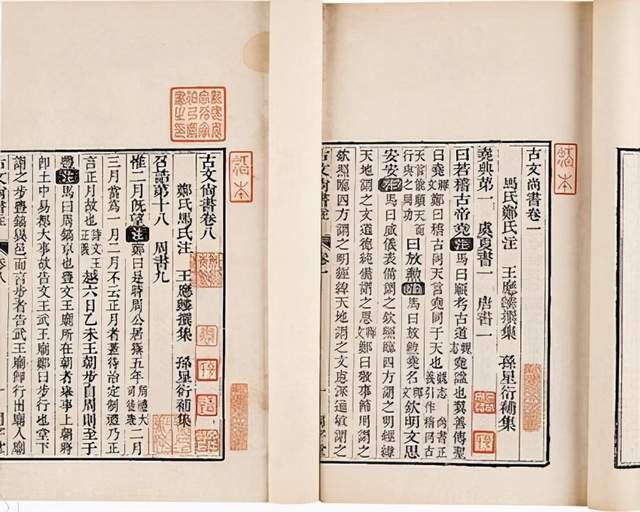 古文尚書卷一
馬氏鄭氏注 王應麟撰集 孫星衍補集
堯典第一 虞夏書一 唐書一
曰若稽古帝堯注馬曰順考古道魏志堯諡也翼善傳聖
曰堯釋文鄭曰稽古同天言堯同于天也魏志 尚書正義引作稽同古
天言能順天而行與之同功曰放勳注馬曰放勳堯名釋文欽明文思
安安注馬曰威儀表備謂之欽照臨四方謂之明經緯
天地謂之文道德純備謂之思釋文鄭曰敬事節用謂之
欽照臨四方謂之明經緯天地謂之文慮深通敏謂之
古文尚書注 卷一
古文尚書卷八
鄭氏馬氏注 王應麟撰集 孫星衍補集
召誥第十八 周書九
惟二月旣望注鄭曰是時周公居攝五年周禮大司徒疏二月
三月當爲一月二月不云正月者蓋待治定制禮乃正
言正月故也詩文王正義越六日乙未王朝步自周則至于
豐注馬曰周鎬京也豐文王廟所在朝者舉事上朝將
卽土中易都大事故告文王武王廟鄭曰步行也堂下
謂之步豐鎬異邑而言步者告武王廟卽行出廟入廟
古文尚書注 卷八